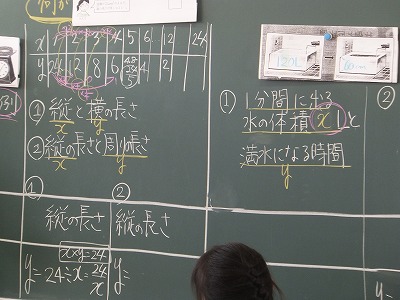 x 1 2 3 4 5 6 12 24
y 24 12 8 6 4.8 4 2
① 縦と横の長さ
x y
② 縦の長さと周りの長さ
x y
① ②
縦の長さ 縦の長さ
x×y=24
y=24÷x=24/x y=
120L
① 1分間に出る
水の体積xLと
満水になる時間
y
②
y=